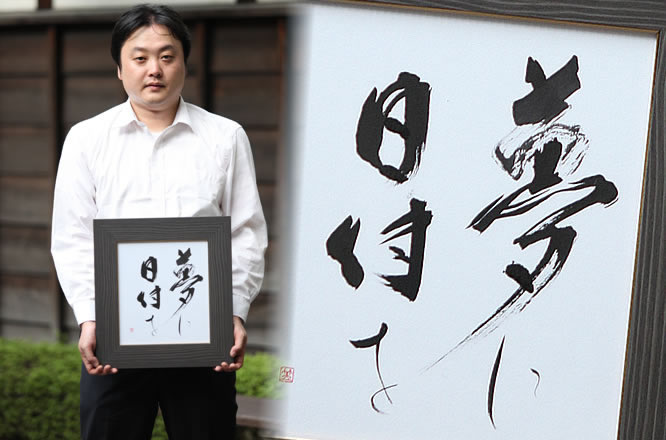 夢に
日付を
夢に
日付を